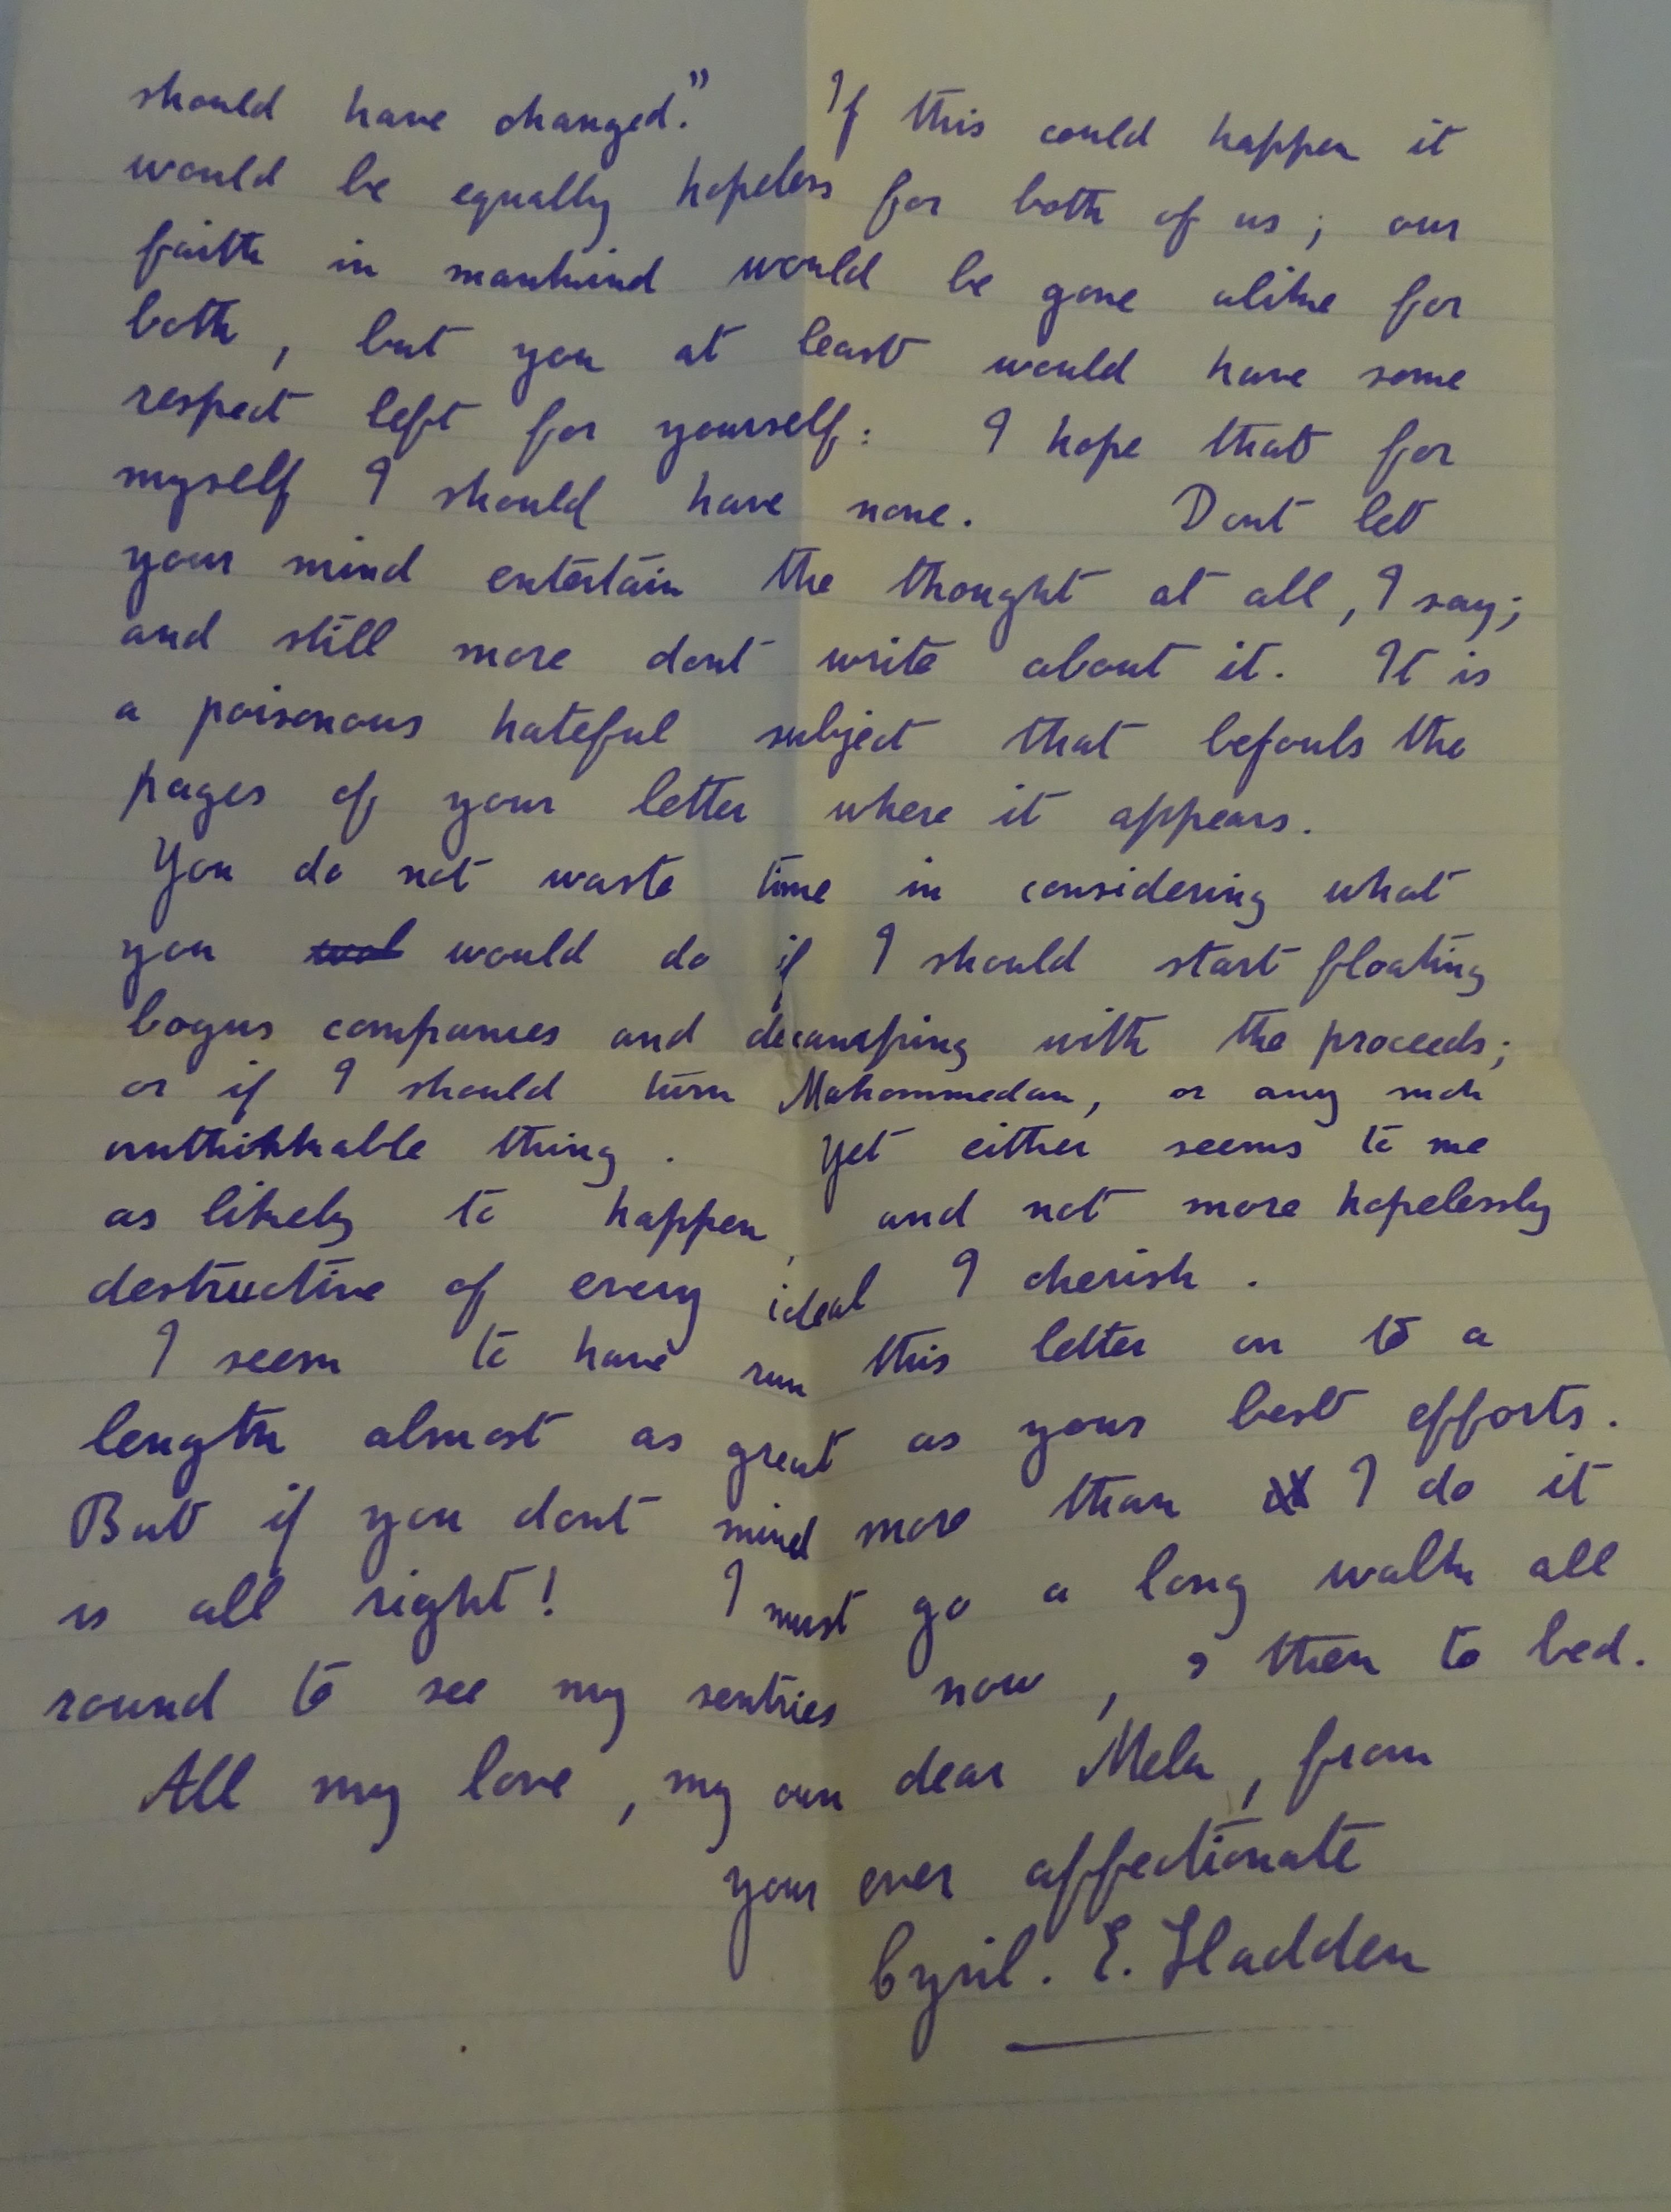 should have changed." If this could happen it
would be equally hopeless for both of us; our
faith in mankind would be gone alike for
both, but you at least would have some
respect left for yourself: I hope that for
myself I should have none. Dont let
your mind entertain the thought at all, I say;
and still more dont write about it. It is
a poisonous hateful subject that befouls the
pages of your letter where it appears.
You do not waste time in considering what
you would do if I should start floating
bogus companies and decamping with the proceeds;
or if I should turn Mahommedan, or any such
unthinkable thing. Yet either seems to me
as likely to happen, and not more hopelessly
destructive of every ideal I cherish.
I seem to have run this letter on to a
length almost as great as your best efforts.
But if you dont mind more than I do it
is all right! I must go a long walk all
round to see my sentries now, & then to bed.
All my love, my own dear Mela, from
your ever affectionate
Cyril. E. Hadden